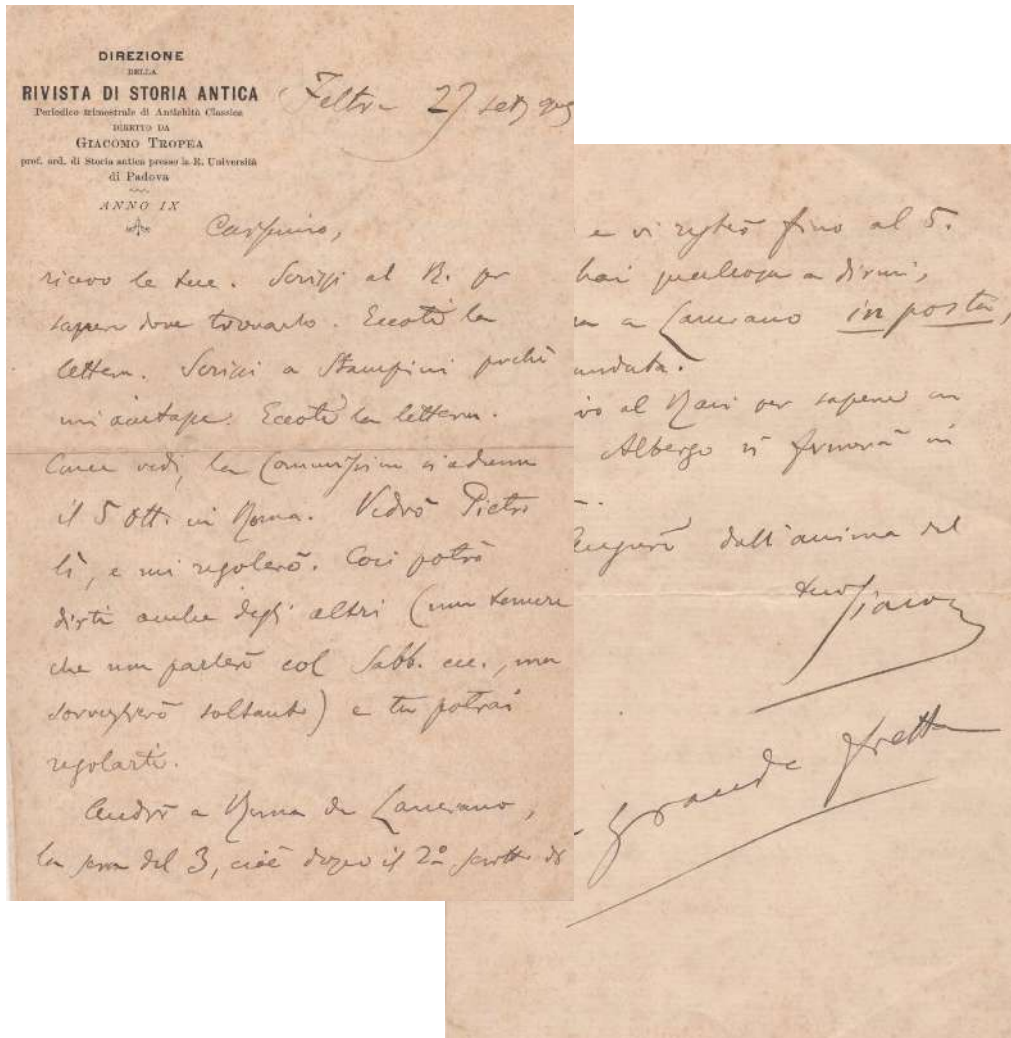 DIREZIONE
DELLA
RIVISTA DI STORIA ANTICA
Periodico trimestrale di Antichità Classica
DIRETTO DA
GIACOMO TROPEA
prof. ord. di Storia antica presso la R. Università
di Padova
ANNO IX
Feltre 27 sett
Carissimo,
ricevo le tue. Scrissi al B. per
sapere dove trovarlo. Eccoti la
lettera. Scrissi a Stampini perchè
mi aiutasse. Eccoti la lettera.
Come vedi, la Commissione si aduna
il 5 Ott. in Roma. Vedrò Pietro
lì, e mi regolerò. Così potrò
dirti anche degli altri (non temere
che non parlerò col Sabb. ecc., ma
sorveglierò soltanto) e tu potrai
regolarti.
Andrò a Roma da Lanciano,
la sera del 3, cioè dopo il 2º scritto di
e vi resterò fino al 5.
hai qualcosa a dirmi,
a Lanciano in posta,
al per sapere in
Albergo si fermerà in
dall'anima del
tuo Giacomo
grande fretta